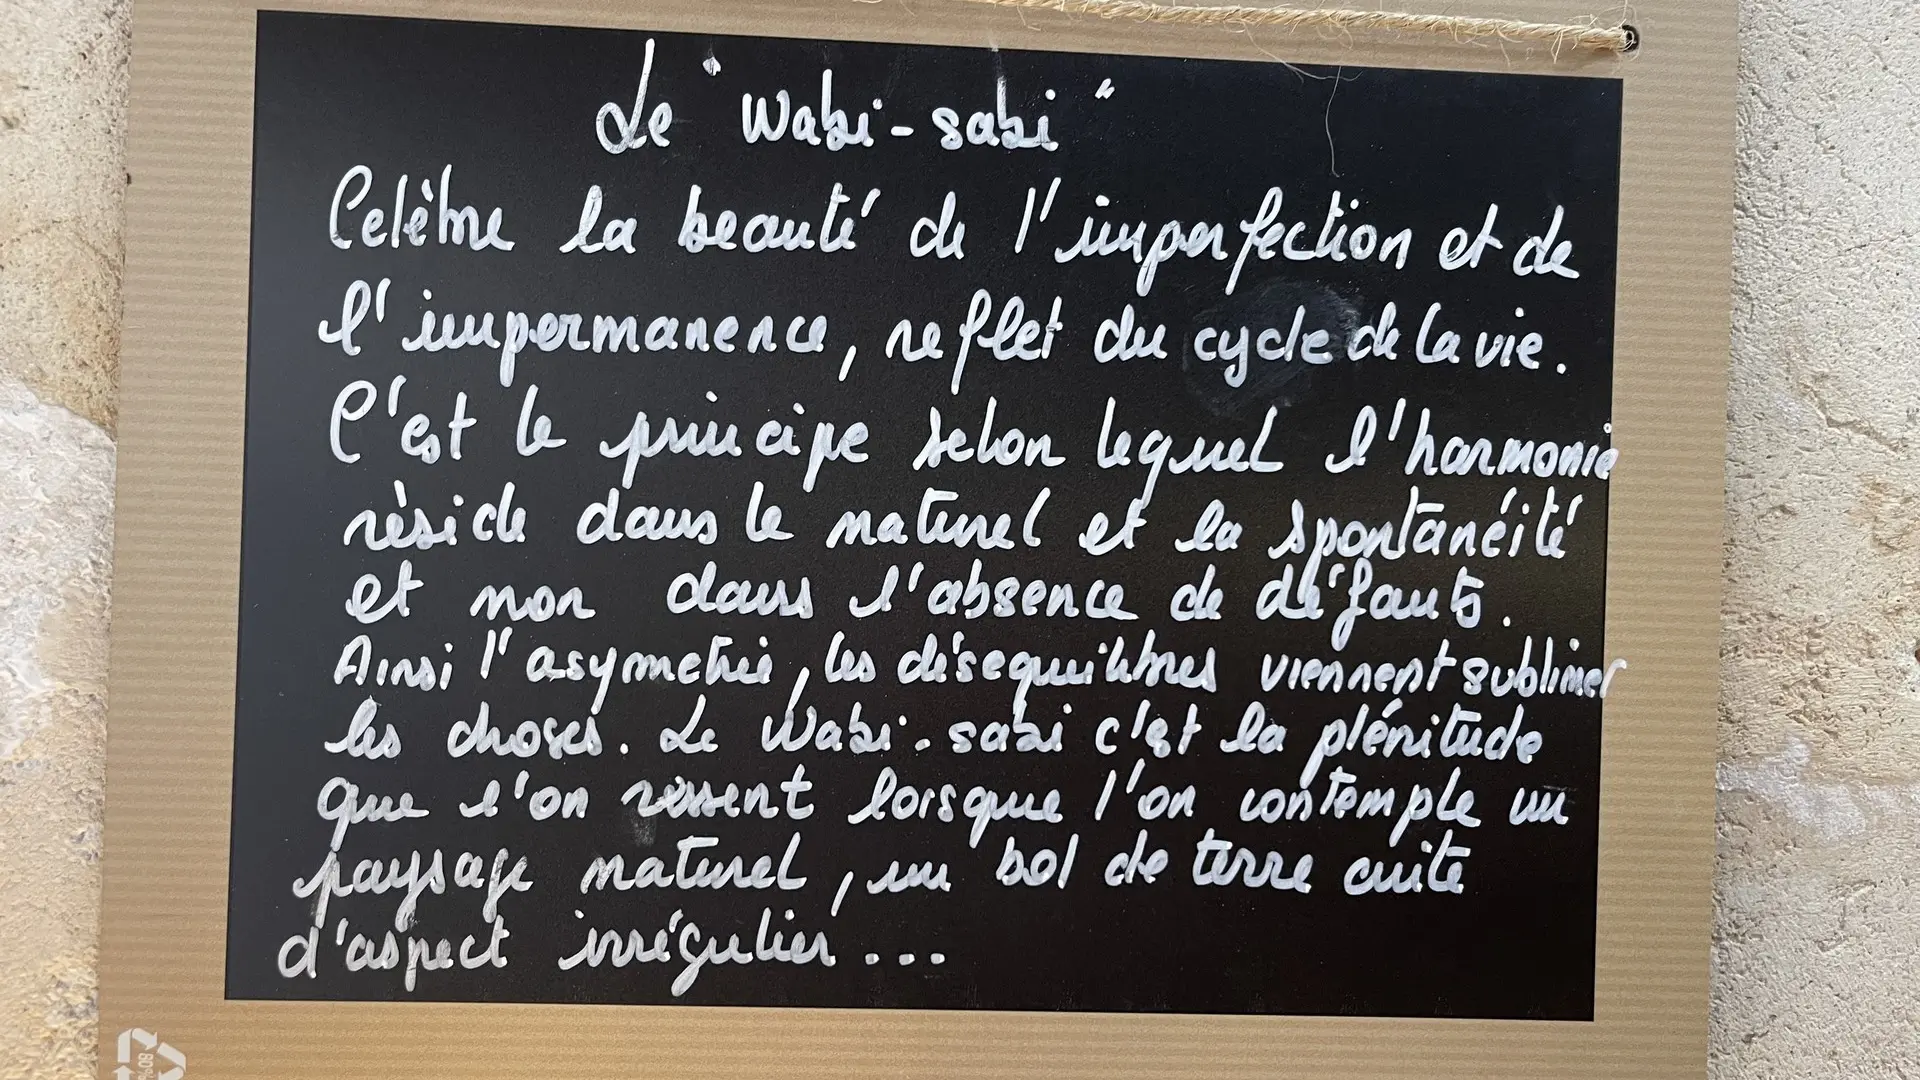 Le "Wabi-sabi"
Celèbre la beauté de l'imperfection et de
l'impermanence, reflet du cycle de la vie.
C'est le principe selon lequel l'harmonie
réside dans le naturel et la spontanéité
et non dans l'absence de défauts.
Ainsi l'asymetrie, les désequilibres viennent sublimer
les choses. Le Wabi-sabi c'est la plénitude
que l'on ressent lorsque l'on contemple un
paysage naturel, un bol de terre cuite
d'aspect irrégulier...
80%